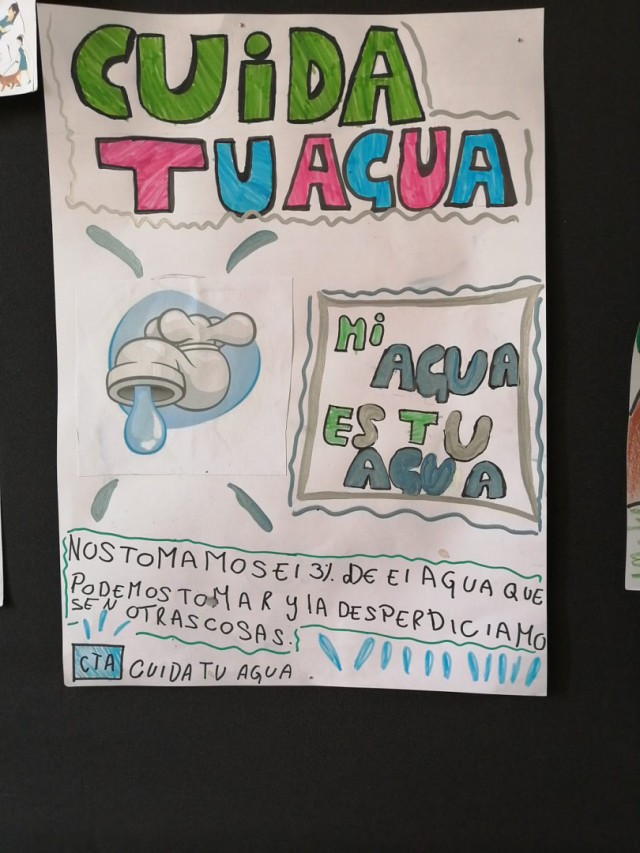 CUiDA
TU AGUA
Mi
AGUA
ES TU
AGUA
NOS TOMAMOS El 3% DE El AGUA QUE
PODEMOS TOMAR Y lA DESPERDICIAMO
S EN OTRAS COSAS.
CTA CUIDA TU AGUA